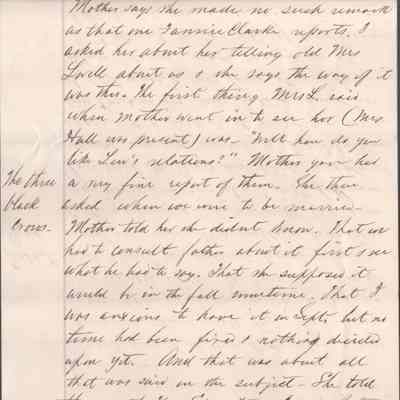 Mother says she made no such remark
as that one Fannie Clarke reports. I
asked her about her telling old Mrs
Lwell about us & she says the way of it
was this. The first thing Mrs L. said
when Mother went in to see her (Mrs
Hall was present) was - "Well how do you
like Lew's relations?" Mother gave her
a very fine report of them. She then
asked when we were to be married.
Mother told her she didnt know. That we
had to consult father about it first & see
what he had to say. That she supposed it
would be in the fall sometime. That I
was anxious to have it in Sept. but no
time had been fixed & nothing decided
upon yet. And that was about all
that was said on the subject - She told
The three
black
Crows.